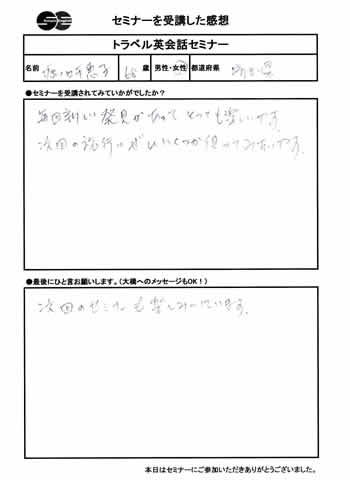 セミナーを受講した感想
トラベル英会話セミナー
名前 恵子 68 歳 男性・女性 都道府県
●セミナーを受講されてみていかがでしたか?
毎回新しい発見があって とっても楽しいです。
次回の旅行にぜひいくつか使ってみたいです。
●最後にひと言お願いします。(大橋へのメッセージもOK!)
次回のセミナーも楽しみにしています。
本日はセミナーにご参加いただきありがとうございました。